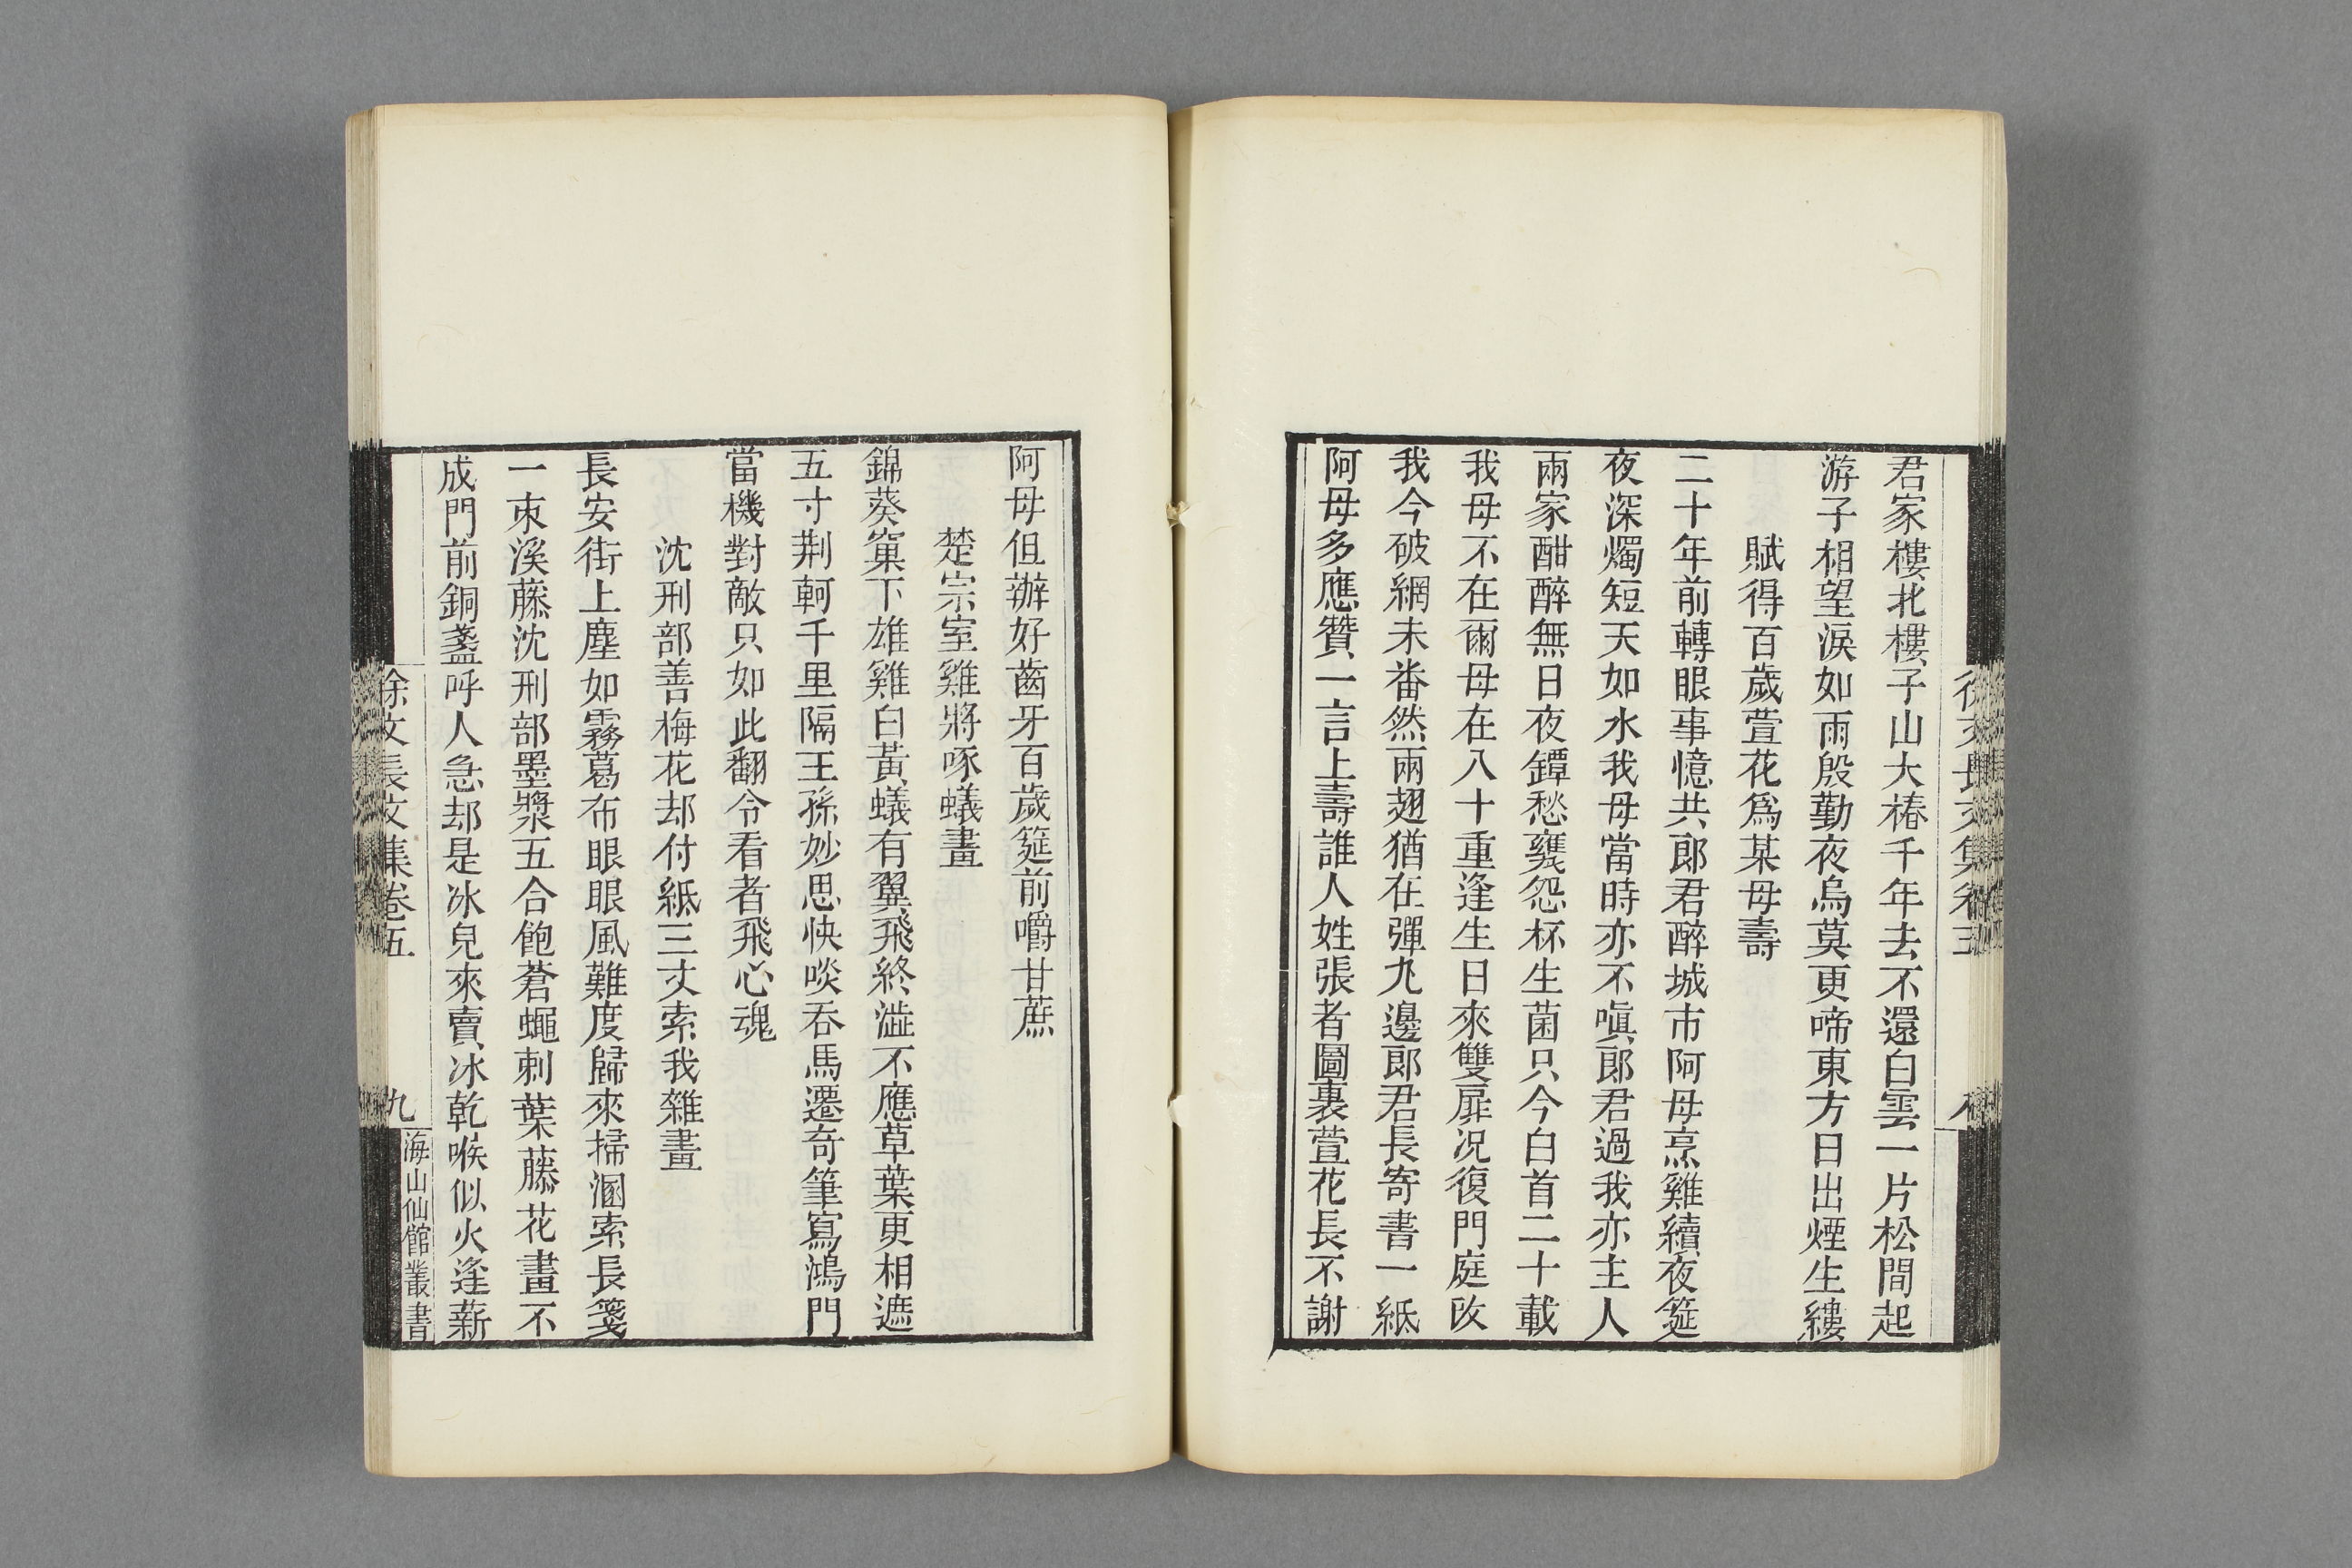 君家樓北樓子山大椿千年去不還白雲一片松間起
游子相望淚如雨殷勤夜烏莫更啼東方日出煙生縷
賦得百歲萱花爲某母壽
二十年前轉眼事憶共郎君醉城市阿母烹雞續夜筵
夜深燭短天如水我母當時亦不嗔郎君過我亦主人
兩家酣醉無日夜鐔愁甕怨杯生菌只今白首二十載
我母不在爾母在八十重逢生日來雙扉況復門庭改
我今破網未畨然兩翅猶在彈九邊郎君長寄書一紙
阿母多應贊一言上壽誰人姓張者圖裏萱花長不謝
徐文長文集卷五
八
阿母但辦好齒牙百歲筵前嚼甘蔗
楚宗室雞將啄蟻畫
錦葵窠下雄雞白黃蟻有翼飛終澁不應草葉更相遮
五寸荆軻千里隔王孫妙思快啖吞馬遷奇筆寫鴻門
當機對敵只如此翻令看者飛心魂
沈刑部善梅花却付紙三丈索我雜畫
長安街上塵如霧葛布眼眼風難度歸來掃溷索長箋
一束溪藤沈刑部墨漿五合飽蒼蠅刺葉藤花畫不
成門前銅盞呼人急却是冰兒來賣冰乾喉似火逢薪
徐文長文集卷五
九
海山仙館叢書